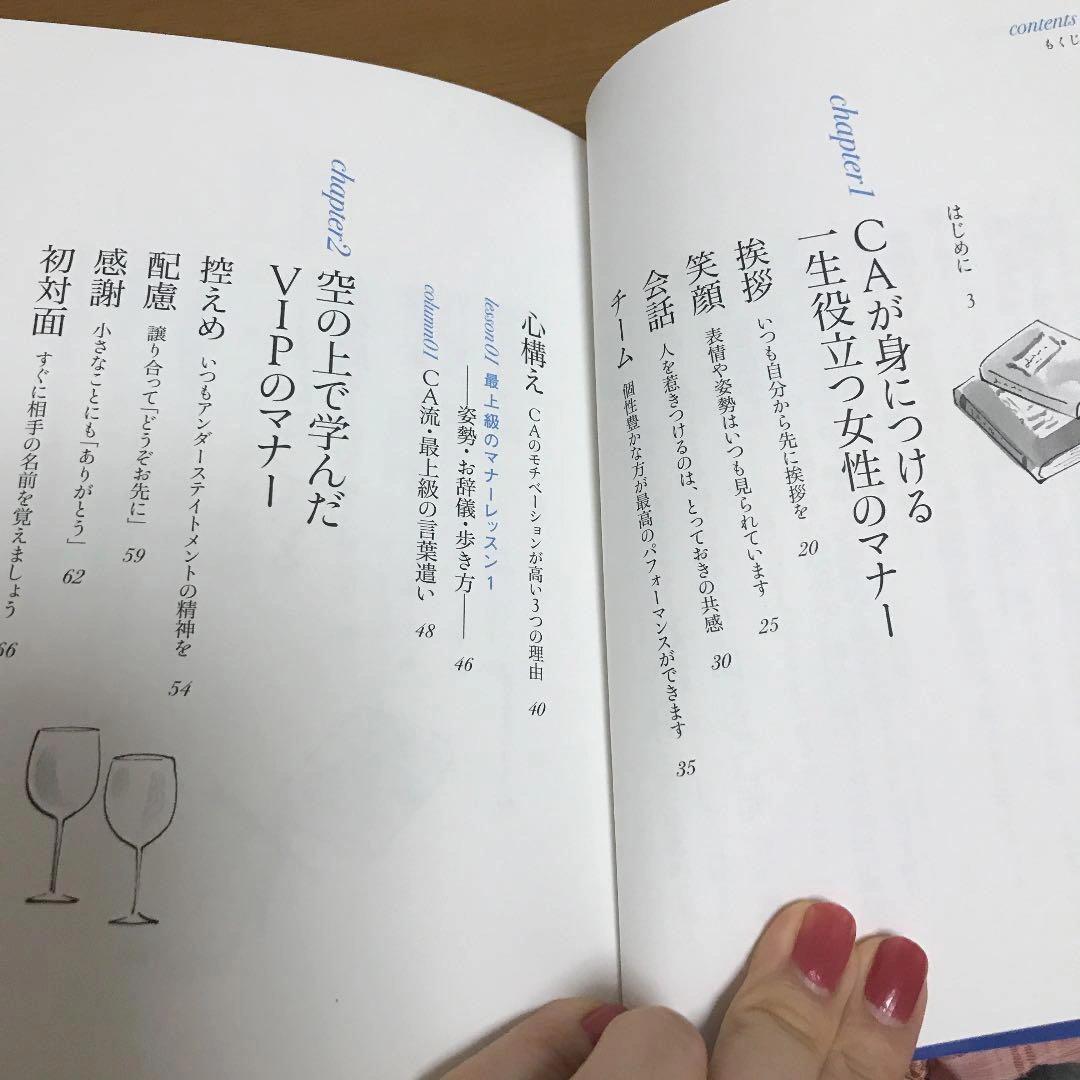 contents
もくじ
はじめに 3
chapter1
CAが身につける
一生役立つ女性のマナー
挨拶 いつも自分から先に挨拶を 20
笑顔 表情や姿勢はいつも見られています 25
会話 人を惹きつけるのは、とっておきの共感 30
チーム 個性豊かな方が最高のパフォーマンスができます 35
心構え CAのモチベーションが高い3つの理由 40
lesson01 最上級のマナーレッスン1
——姿勢・お辞儀・歩き方—— 46
column01 CA流・最上級の言葉遣い 48
chapter2
空の上で学んだ
VIPのマナー
控えめ いつもアンダーステイトメントの精神を 54
配慮 譲り合って「どうぞお先に」 59
感謝 小さなことにも「ありがとう」 62
初対面 すぐに相手の名前を覚えましょう 66